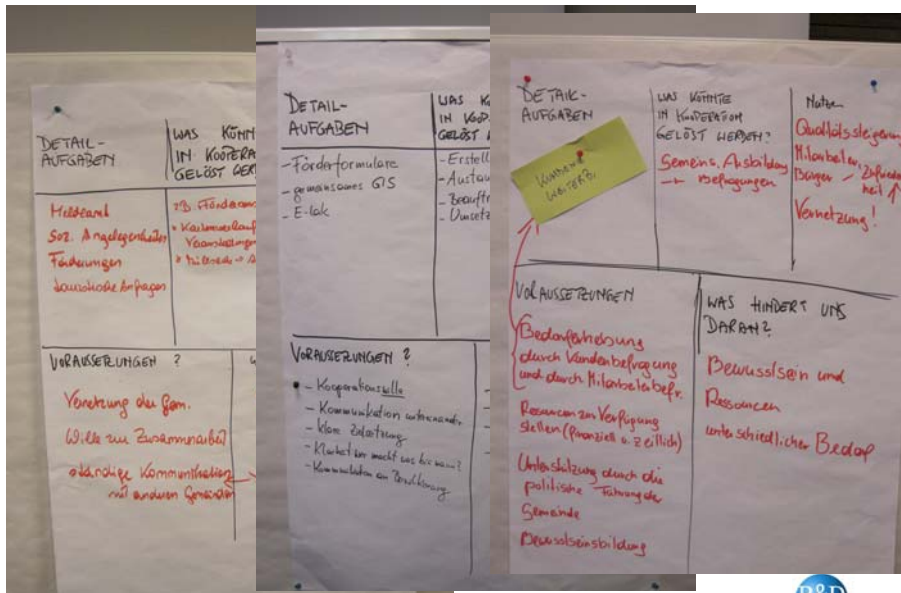 DETAIL-
AUFGABEN
WAS KÖNN
IN KOOPERA
GELÖST WER
Meldeamt
Soz. Angelegenheiten
Förderungen
Touristische Anfragen
z.B. Förderans
• Kartenverkauf
Veranstaltungen
VORAUSSETZUNGEN ?
Vernetzung der Gem.
Wille zur Zusammenarbeit
ständige Kommunikation
mit anderen Gemeinden
DETAIL-
AUFGABEN
WAS KÖ
IN KOOP
GELÖST
- Förderformulare
- gemeinsames GIS
- E-lak
- Erstell
- Austau
- Beauftr
- Umsetz
VORAUSSETZUNGEN ?
- Kooperationswille
- Kommunikation untereinander
- klare Zielsetzung
- Klarheit wer macht was bis wann?
- Kommunikation an Bevölkerung
DETAIL-
AUFGABEN
WAS KÖNNTE
IN KOOPERATION
GELÖST WERDEN?
Nutzen
WEITERB.
Gemeins. Ausbildung
→ Befragungen
Qualitätssteigerung
Mitarbeiter,
Bürger - Zufrieden
heit ↑
Vernetzung!
VORAUSSETZUNGEN
Bedarfserhebung
durch Kundenbefragung
und durch Mitarbeiterbefr.
Ressourcen zur Verfügung
stellen (finanziell u. zeitlich)
Unterstützung durch die
politische Führung der
Gemeinde
Bewusstseinsbildung
WAS HINDERT UNS
DARAN?
Bewusstsein und
Ressourcen
unterschiedlicher Bedarf